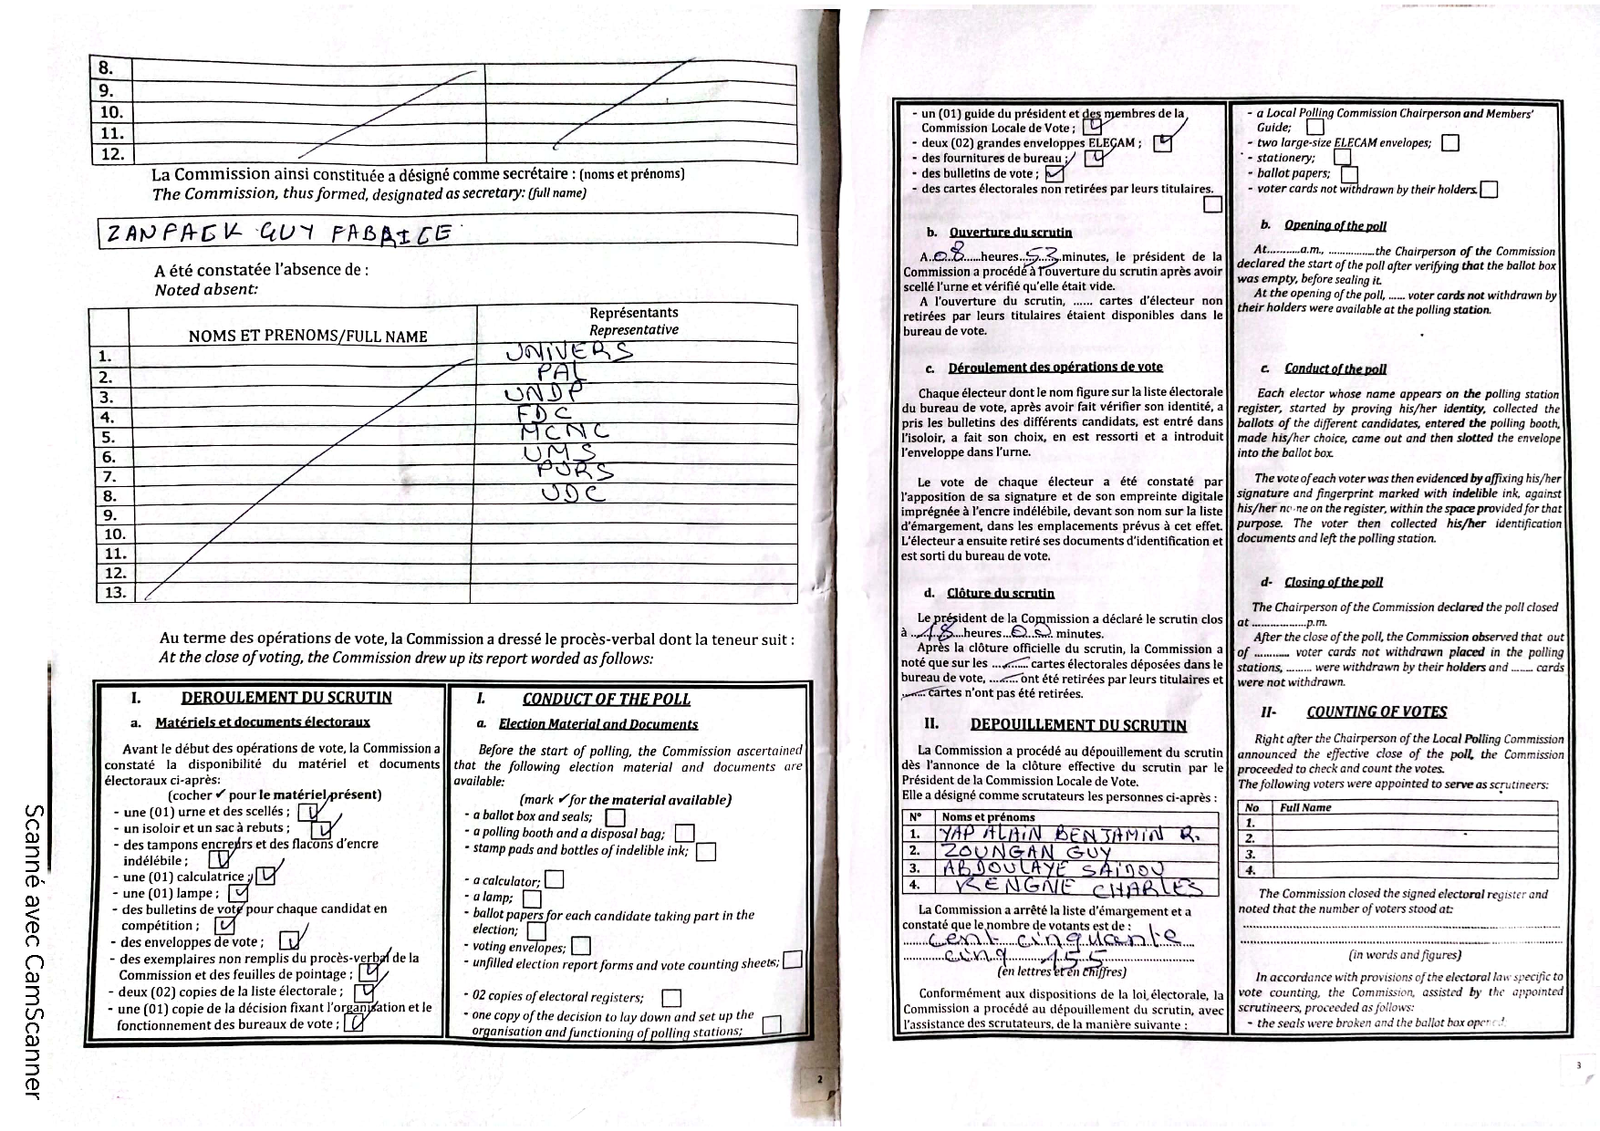 8.
9.
10.
11.
12.
La Commission ainsi constituée a désigné comme secrétaire : (noms et prénoms)
The Commission, thus formed, designated as secretary: (full name)
ZANPACK GUY FABRICE
A été constatée l'absence de :
Noted absent:
NOMS ET PRENOMS/FULL NAME
Représentants
Representative
1. UNIVERS
2. PAL
3. UNDP
4. FDC
5. MCNC
6. UMS
7. PURS
8. UDC
9.
10.
11.
12.
13.
Au terme des opérations de vote, la Commission a dressé le procès-verbal dont la teneur suit :
At the close of voting, the Commission drew up its report worded as follows:
I. DEROULEMENT DU SCRUTIN
a. Matériels et documents électoraux
Avant le début des opérations de vote, la Commission a
constaté la disponibilité du matériel et documents
électoraux ci-après:
(cocher ✓ pour le matériel présent)
- une (01) urne et des scellés ;
- un isoloir et un sac à rebuts ;
- des tampons encreurs et des flacons d'encre
indélébile ;
- une (01) calculatrice ;
- une (01) lampe ;
- des bulletins de vote pour chaque candidat en
compétition ;
- des enveloppes de vote ;
- des exemplaires non remplis du procès-verbal de la
Commission et des feuilles de pointage ;
- deux (02) copies de la liste électorale ;
- une (01) copie de la décision fixant l'organisation et le
fonctionnement des bureaux de vote ;
I. CONDUCT OF THE POLL
a. Election Material and Documents
Before the start of polling, the Commission ascertained
that the following election material and documents are
available:
(mark ✓ for the material available)
- a ballot box and seals;
- a polling booth and a disposal bag;
- stamp pads and bottles of indelible ink;
- a calculator;
- a lamp;
- ballot papers for each candidate taking part in the
election;
- voting envelopes;
- unfilled election report forms and vote counting sheets;
- 02 copies of electoral registers;
- one copy of the decision to lay down and set up the
organisation and functioning of polling stations;
2
- un (01) guide du président et des membres de la
Commission Locale de Vote ;
- deux (02) grandes enveloppes ELECAM ;
- des fournitures de bureau ;
- des bulletins de vote ;
- des cartes électorales non retirées par leurs titulaires.
b. Ouverture du scrutin
A..08......heures..53..minutes, le président de la
Commission a procédé à l'ouverture du scrutin après avoir
scellé l'urne et vérifié qu'elle était vide.
A l'ouverture du scrutin, ...... cartes d'électeur non
retirées par leurs titulaires étaient disponibles dans le
bureau de vote.
c. Déroulement des opérations de vote
Chaque électeur dont le nom figure sur la liste électorale
du bureau de vote, après avoir fait vérifier son identité, a
pris les bulletins des différents candidats, est entré dans
l'isoloir, a fait son choix, en est ressorti et a introduit
l'enveloppe dans l'urne.
Le vote de chaque électeur a été constaté par
l'apposition de sa signature et de son empreinte digitale
imprégnée à l'encre indélébile, devant son nom sur la liste
d'émargement, dans les emplacements prévus à cet effet.
L'électeur a ensuite retiré ses documents d'identification et
est sorti du bureau de vote.
d. Clôture du scrutin
Le président de la Commission a déclaré le scrutin clos
à ..18...heures..00.. minutes.
Après la clôture officielle du scrutin, la Commission a
noté que sur les ........ cartes électorales déposées dans le
bureau de vote, ........ont été retirées par leurs titulaires et
........cartes n'ont pas été retirées.
II. DEPOUILLEMENT DU SCRUTIN
La Commission a procédé au dépouillement du scrutin
dès l'annonce de la clôture effective du scrutin par le
Président de la Commission Locale de Vote.
Elle a désigné comme scrutateurs les personnes ci-après :
N° Noms et prénoms
1. YAP ALAIN BENJAMIN R.
2. ZOUNGAN GUY
3. ABDOULAYE SAIDOU
4. KENGNE CHARLES
La Commission a arrêté la liste d'émargement et a
constaté que le nombre de votants est de :
cent cinquante
cinq 155
(en lettres et en chiffres)
Conformément aux dispositions de la loi électorale, la
Commission a procédé au dépouillement du scrutin, avec
l'assistance des scrutateurs, de la manière suivante :
- a Local Polling Commission Chairperson and Members'
Guide;
- two large-size ELECAM envelopes;
- stationery;
- ballot papers;
- voter cards not withdrawn by their holders.
b. Opening of the poll
At...........a.m., ...............the Chairperson of the Commission
declared the start of the poll after verifying that the ballot box
was empty, before sealing it.
At the opening of the poll, ...... voter cards not withdrawn by
their holders were available at the polling station.
c. Conduct of the poll
Each elector whose name appears on the polling station
register, started by proving his/her identity, collected the
ballots of the different candidates, entered the polling booth,
made his/her choice, came out and then slotted the envelope
into the ballot box.
The vote of each voter was then evidenced by affixing his/her
signature and fingerprint marked with indelible ink, against
his/her name on the register, within the space provided for that
purpose. The voter then collected his/her identification
documents and left the polling station.
d- Closing of the poll
The Chairperson of the Commission declared the poll closed
at ..................p.m.
After the close of the poll, the Commission observed that out
of ............ voter cards not withdrawn placed in the polling
stations, ........ were withdrawn by their holders and ....... cards
were not withdrawn.
II- COUNTING OF VOTES
Right after the Chairperson of the Local Polling Commission
announced the effective close of the poll, the Commission
proceeded to check and count the votes.
The following voters were appointed to serve as scrutineers:
No Full Name
1.
2.
3.
4.
The Commission closed the signed electoral register and
noted that the number of voters stood at:
(in words and figures)
In accordance with provisions of the electoral law specific to
vote counting, the Commission, assisted by the appointed
scrutineers, proceeded as follows:
- the seals were broken and the ballot box opened;
3
Scanné avec CamScanner